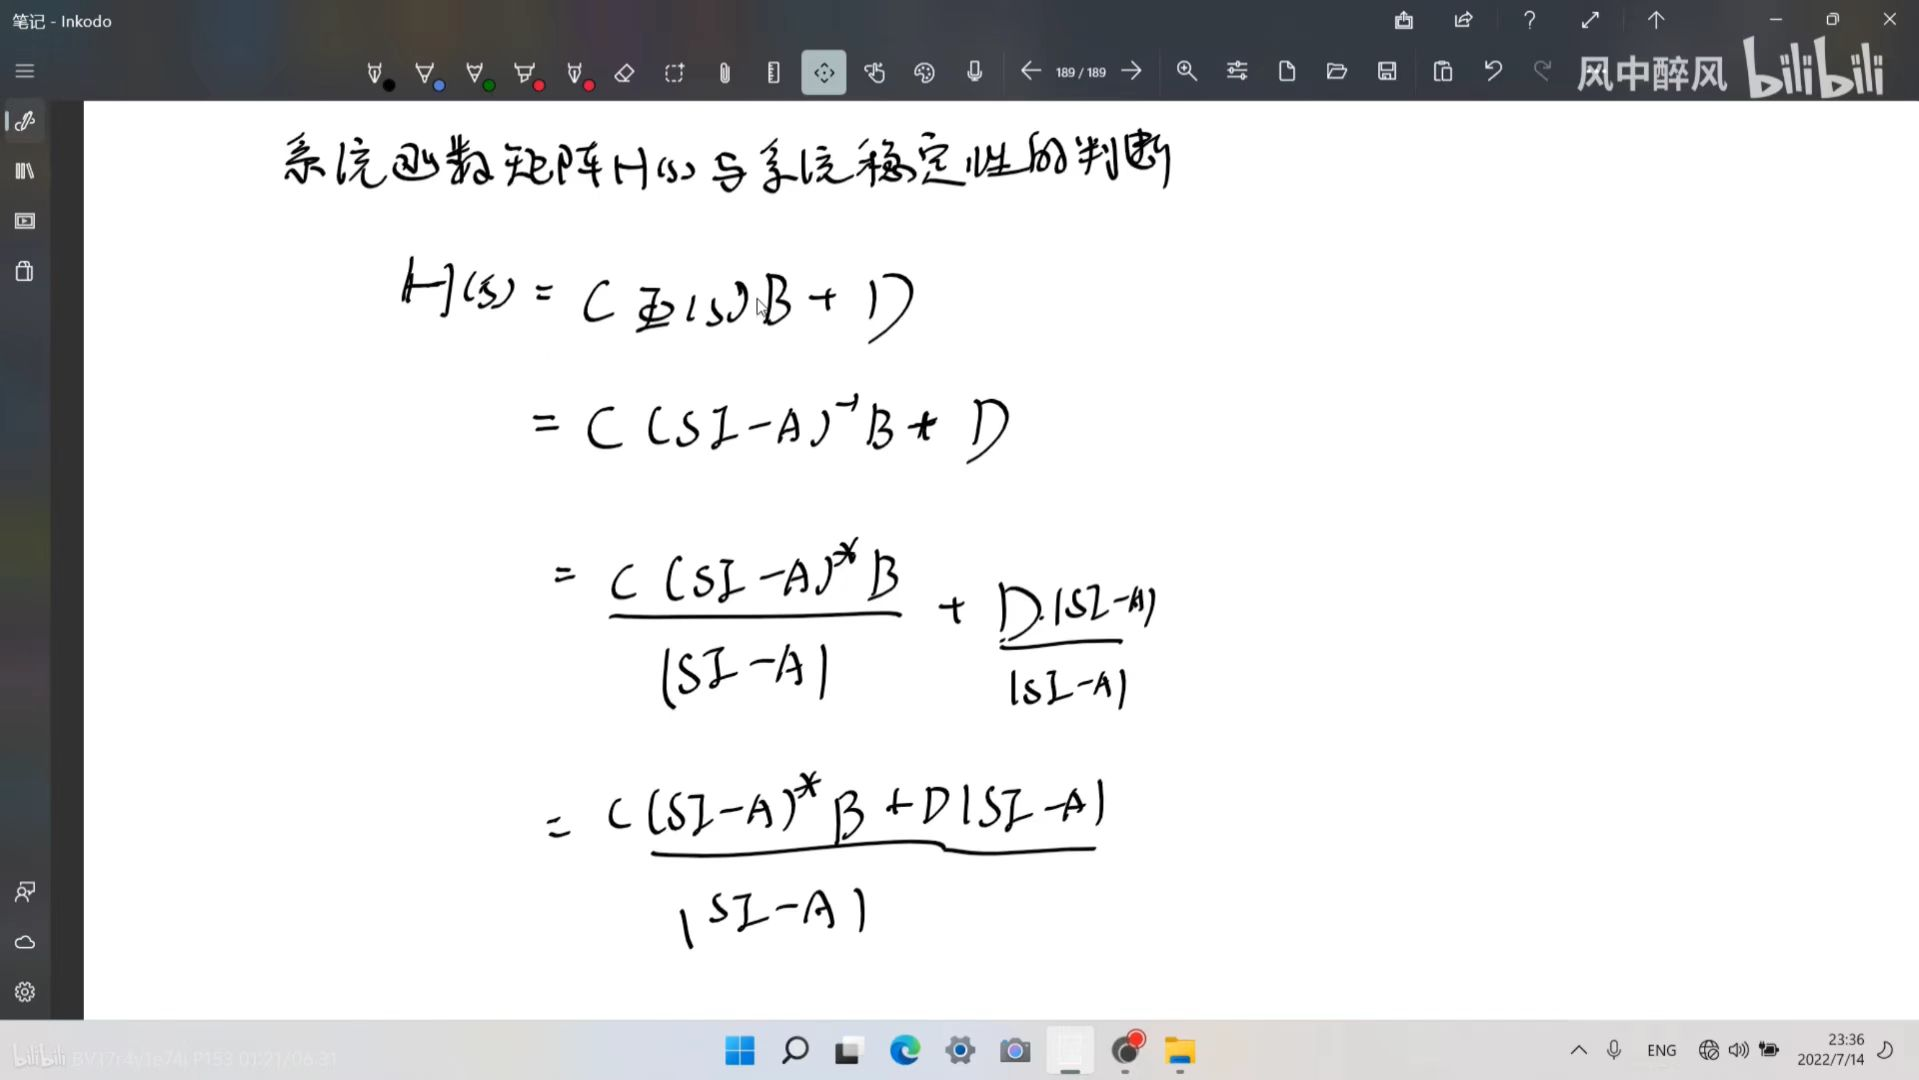 笔记 - Inkodo
189 / 189
风中醉风 bilibili
系统函数矩阵H(s)与系统稳定性的判断
H(s) = C Φ(s) B + D
= C (SI-A)⁻¹ B + D
= C (SI-A)* B / |SI-A| + D·|SI-A| / |SI-A|
= C (SI-A)* B + D|SI-A| / |SI-A|
bilibili BV17r4y1e74j P153 01:21/06:31
ENG
23:36
2022/7/14